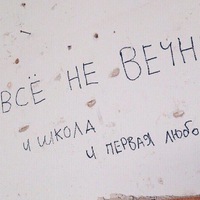 ВСЁ НЕ ВЕЧН
И ШКОЛА
И ПЕРВАЯ ЛЮБО